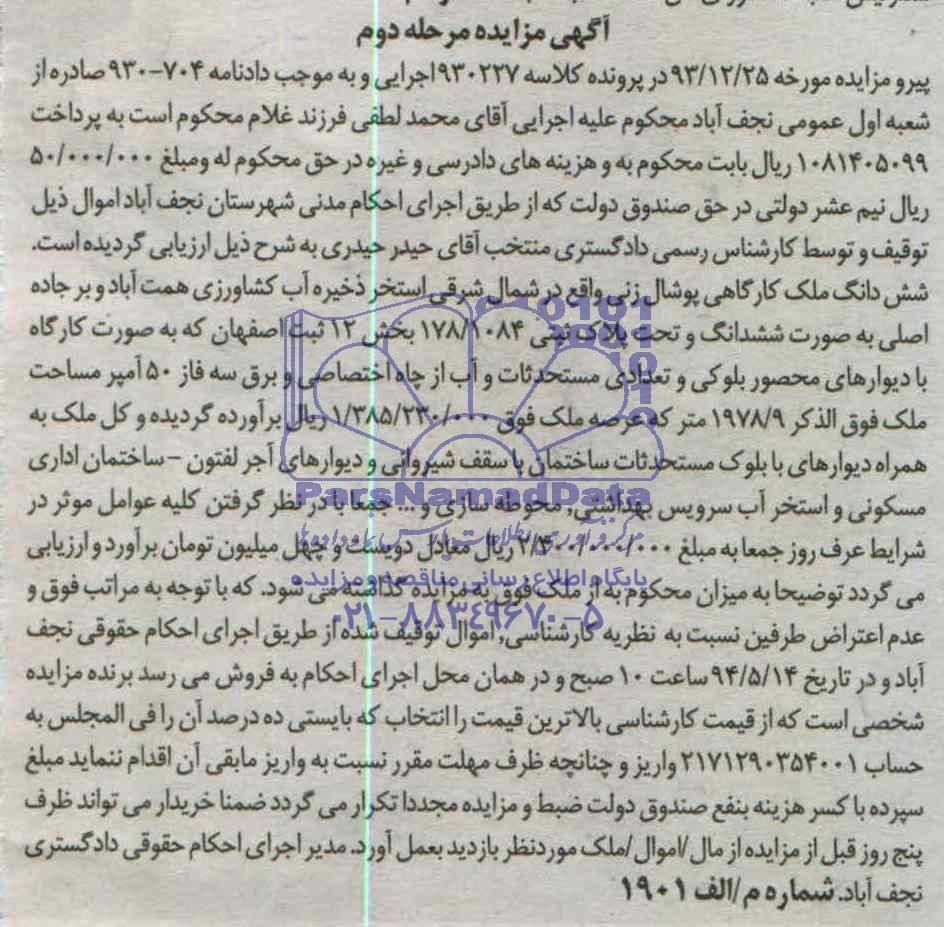 آگهی مزایده مرحله دوم
پیرو مزایده مورخه ۹۳/۱۲/۲۵ در پرونده کلاسه ۹۳۰۲۲۷ اجرایی و به موجب دادنامه ۷۰۴-۹۳۰ صادره از
شعبه اول عمومی نجف آباد محکوم علیه اجرایی آقای محمد لطفی فرزند غلام محکوم است به پرداخت
۱۰۸۱۴۰۵۰۹۹ ریال بابت محکوم به و هزینه های دادرسی و غیره در حق محکوم له ومبلغ ۵۰/۰۰۰/۰۰۰
ریال نیم عشر دولتی در حق صندوق دولت که از طریق اجرای احکام مدنی شهرستان نجف آباد اموال ذیل
توقیف و توسط کارشناس رسمی دادگستری منتخب آقای حیدر حیدری به شرح ذیل ارزیابی گردیده است.
شش دانگ ملک کارگاهی پوشال زنی واقع در شمال شرقی استخر ذخیره آب کشاورزی همت آباد و بر جاده
اصلی به صورت ششدانگ و تحت پلاک ثبتی ۱۷۸/۱۰۸۴ بخش ۱۲ ثبت اصفهان که به صورت کارگاه
با دیوارهای محصور بلوکی و تعدادی مستحدثات و آب از چاه اختصاصی و برق سه فاز ۵۰ آمپر مساحت
ملک فوق الذکر ۱۹۷۸/۹ متر که عرصه ملک فوق ۱/۳۸۵/۲۳۰/۰۰۰ ریال برآورده گردیده و کل ملک به
همراه دیوارهای با بلوک مستحدثات ساختمان با سقف شیروانی و دیوارهای آجر لفتون - ساختمان اداری
مسکونی و استخر آب سرویس بهداشتی, محوطه سازی و ... جمعا با در نظر گرفتن کلیه عوامل موثر در
شرایط عرف روز جمعا به مبلغ ۲/۴۰۰/۰۰۰/۰۰۰ ریال معادل دویست و چهل میلیون تومان برآورد و ارزیابی
می گردد توضیحا به میزان محکوم به از ملک فوق به مزایده گذاشته می شود. که با توجه به مراتب فوق و
عدم اعتراض طرفین نسبت به نظریه کارشناسی, اموال توقیف شده از طریق اجرای احکام حقوقی نجف
آباد و در تاریخ ۹۴/۵/۱۴ ساعت ۱۰ صبح و در همان محل اجرای احکام به فروش می رسد برنده مزایده
شخصی است که از قیمت کارشناسی بالاترین قیمت را انتخاب که بایستی ده درصد آن را فی المجلس به
حساب ۲۱۷۱۲۹۰۳۵۴۰۰۱ واریز و چنانچه ظرف مهلت مقرر نسبت به واریز مابقی آن اقدام ننماید مبلغ
سپرده با کسر هزینه بنفع صندوق دولت ضبط و مزایده مجددا تکرار می گردد ضمنا خریدار می تواند ظرف
پنج روز قبل از مزایده از مال/اموال/ملک موردنظر بازدید بعمل آورد. مدیر اجرای احکام حقوقی دادگستری
نجف آباد. شماره م/الف ۱۹۰۱
ParsNamadData
پایگاه اطلاع رسانی مناقصه و مزایده
۰۲۱-۸۸۳۴۹۶۷۰-۵